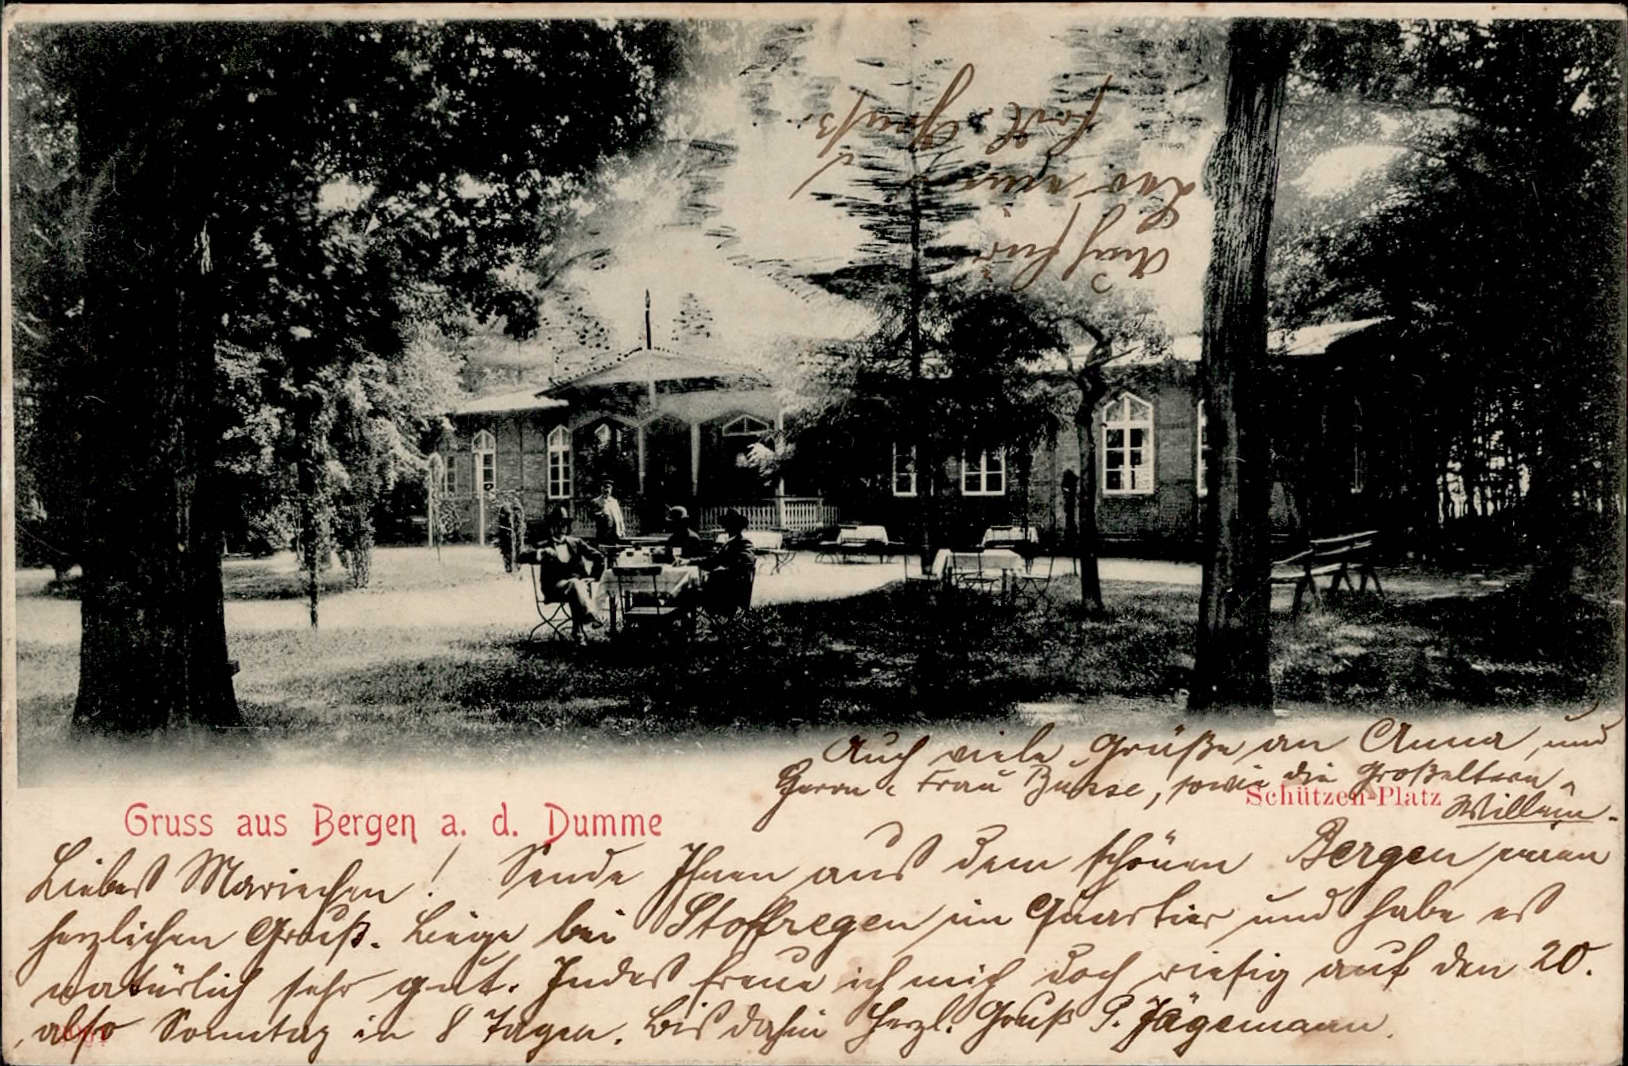 Auch für
das nur
fort. Gruß
Auch viele Grüße an Anna, und
Herrn u. Frau Busse, sowie die Großeltern,
Schützen-Platz
Willein.
Gruss aus Bergen a. d. Dumme
Liebes Mariechen! Sende Ihnen aus dem schönen Bergen einen
herzlichen Gruß. Liege bei Stoffregen im Quartier und habe es
natürlich sehr gut. Indes freue ich mich doch riesig auf den 20.
also Sonntag in 8 Tagen. Bis dahin herzl. Gruß P. Jägemann.